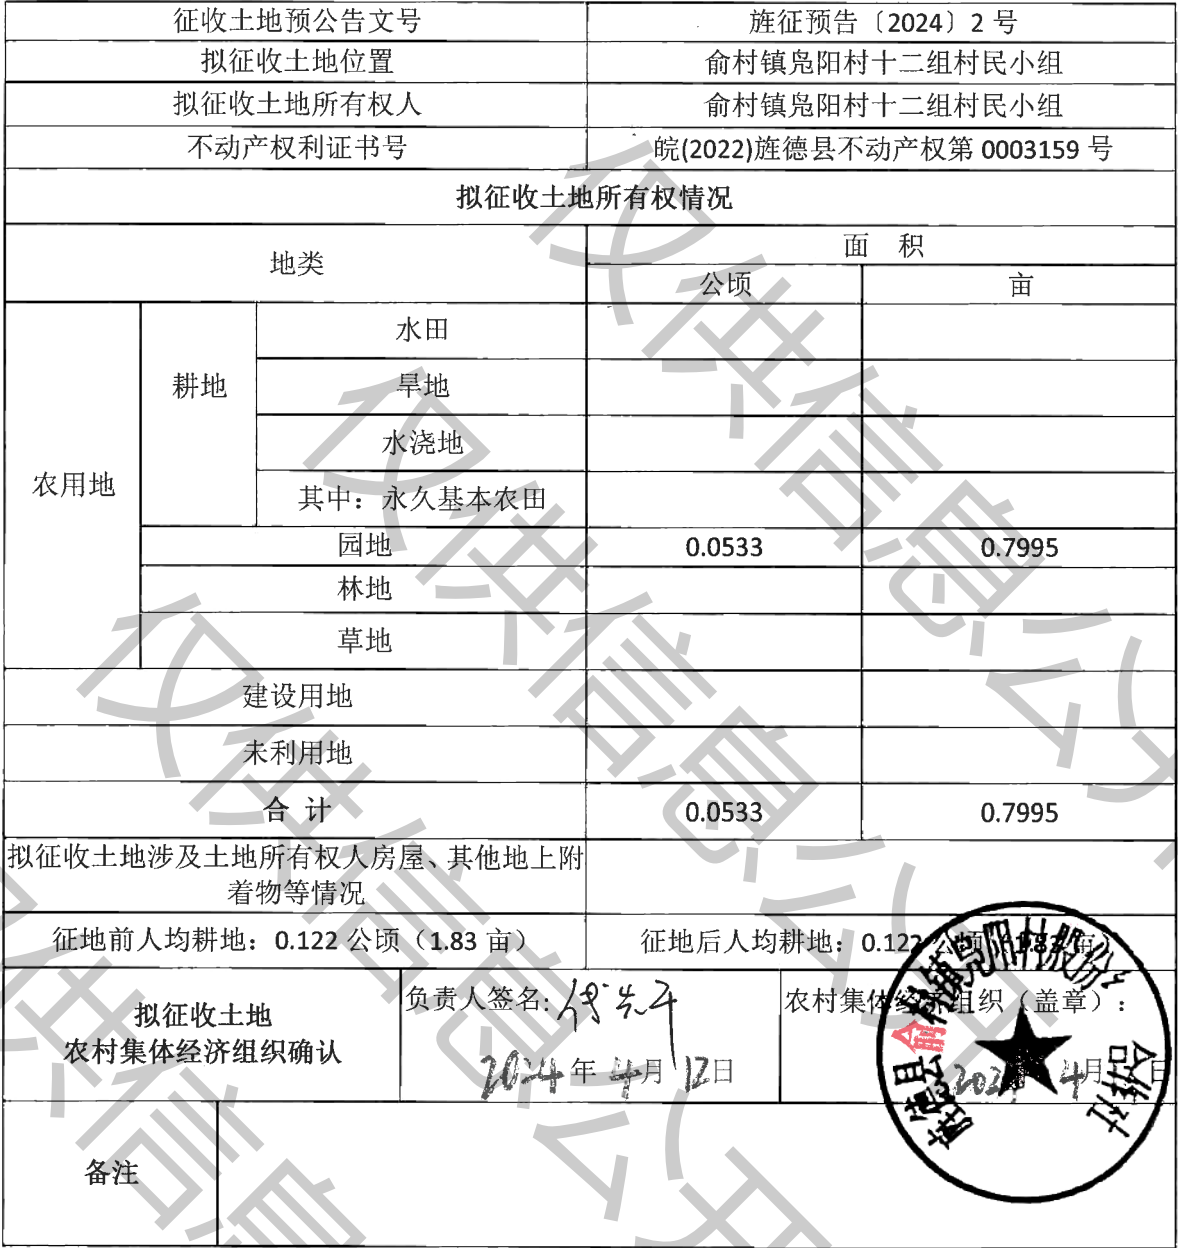 征收土地预公告文号 旌征预告〔2024〕2 号
拟征收土地位置 俞村镇凫阳村十二组村民小组
拟征收土地所有权人 俞村镇凫阳村十二组村民小组
不动产权利证书号 皖(2022)旌德县不动产权第 0003159 号
拟征收土地所有权情况
地类 面 积
公顷 亩
农用地 耕地 水田
旱地
水浇地
其中：永久基本农田
园地 0.0533 0.7995
林地
草地
建设用地
未利用地
合 计 0.0533 0.7995
拟征收土地涉及土地所有权人房屋、其他地上附
着物等情况
征地前人均耕地：0.122 公顷（1.83 亩） 征地后人均耕地：0.122 公顷（1.83 亩）
拟征收土地
农村集体经济组织确认
负责人签名:
2024年 4月 12日
农村集体经济组织（盖章）:
2024 4月 日
旌德县俞村镇凫阳村股份
合作社
备注
仅供信息公开
仅供信息公开
仅供信息公开
供信息